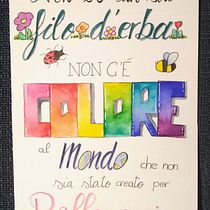 filo d'erba
NON C'É
COLORE
al Mondo che non
sia stato creato per